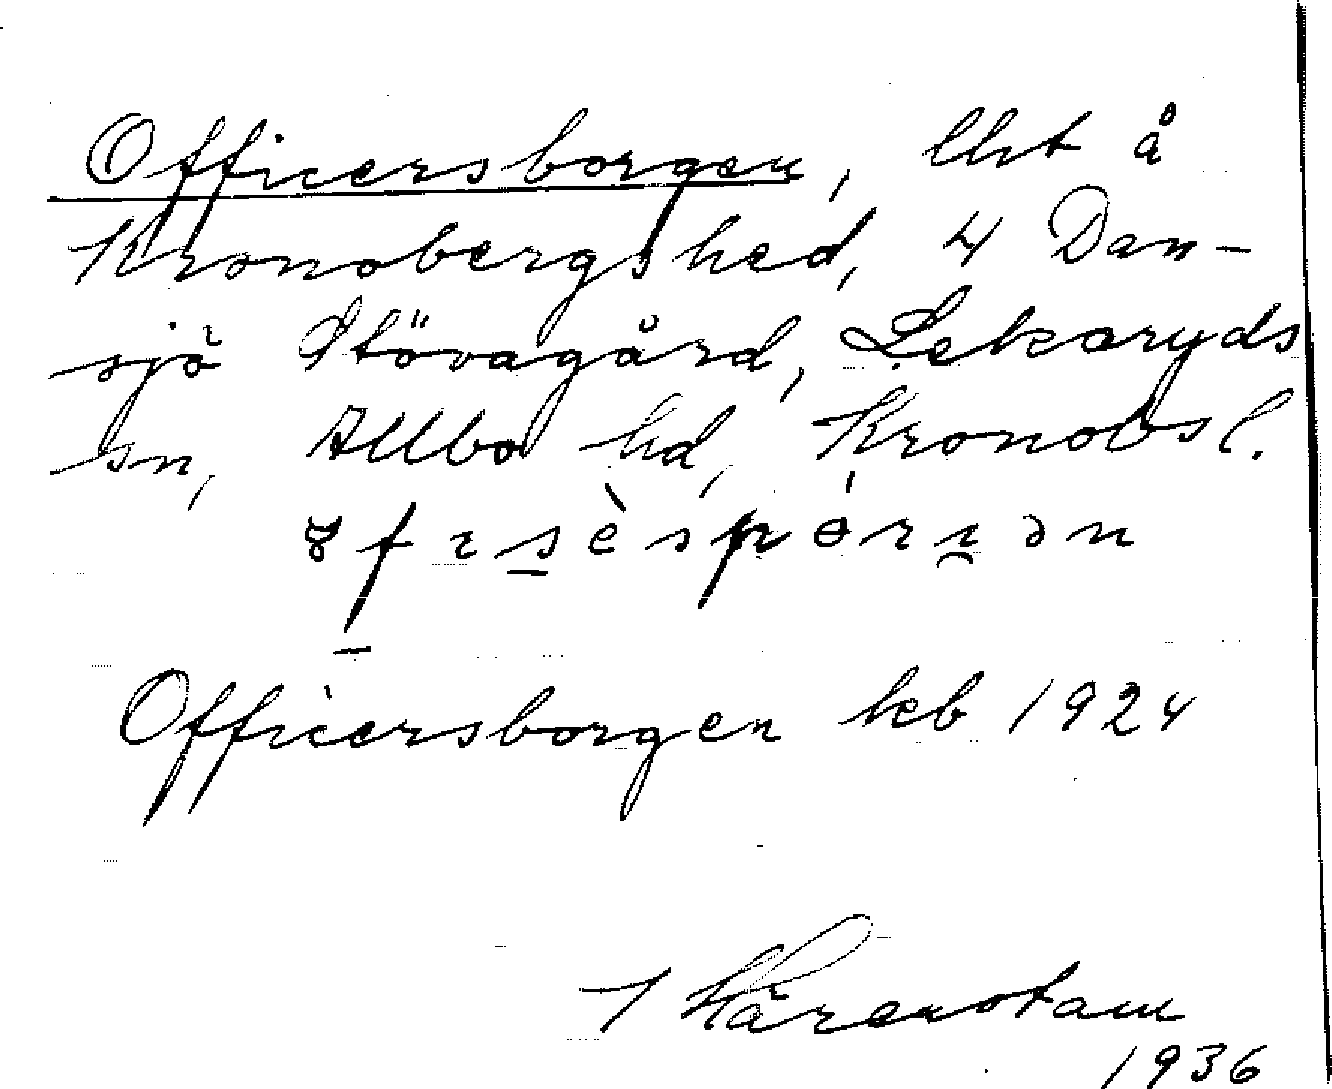 Officersborgen, lht å
Kronobergshed, 4 Dan-
sjö Stövagård, Lekaryds
sn, Allbo hd, Kronobs l.
Officersborgen keb 1924
J Härenstam
1936